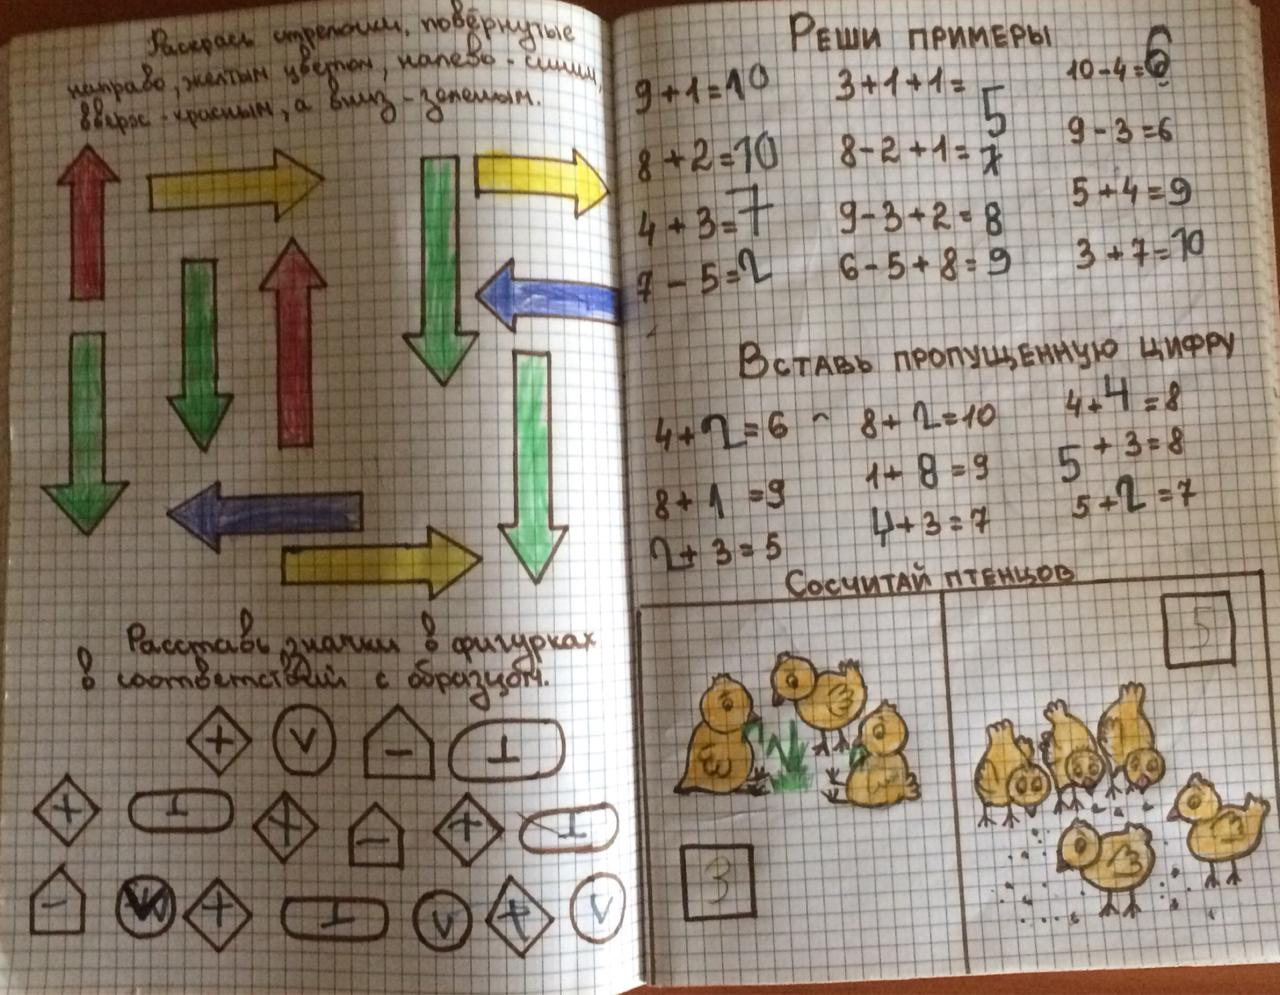 Раскрась стрелочки, повёрнутые
направо, желтым цветом, налево - синим,
вверх - красным, а вниз - зеленым.
Расставь значки в фигурках
в соответствий с образцом.
+ V - ⊥
+ ⊥ + - + ⊥
- V + ⊥ V + V
РЕШИ ПРИМЕРЫ
9+1=10 3+1+1=5 10-4=6
8+2=10 8-2+1=7 9-3=6
4+3=7 9-3+2=8 5+4=9
7-5=2 6-5+8=9 3+7=10
ВСТАВЬ ПРОПУЩЕННУЮ ЦИФРУ
4+2=6 8+2=10 4+4=8
8+1=9 1+8=9 5+3=8
2+3=5 4+3=7 5+2=7
СОСЧИТАЙ ПТЕНЦОВ
3
5